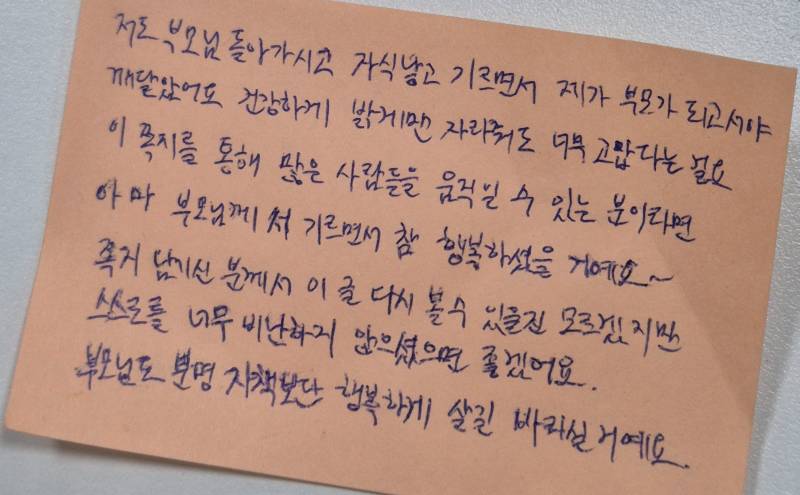 저도 부모님 돌아가시고 자식낳고 기르면서 제가 부모가 되고서야
깨달았어요 건강하게 밝게맨 자라줘도 너무 고맙다는 걸요
이 쪽지를 통해 많은 사람들을 움직일 수 있는 분이라면
아마 부모님께서 기르면서 참 행복하셨을 거예요~
쪽지 남기신 분께서 이 글 다시 볼 수 있을진 모르겠지만
스스로를 너무 비난하지 않으셨으면 좋겠어요.
부모님도 분명 자책보단 행복하게 살길 바라실 거예요.